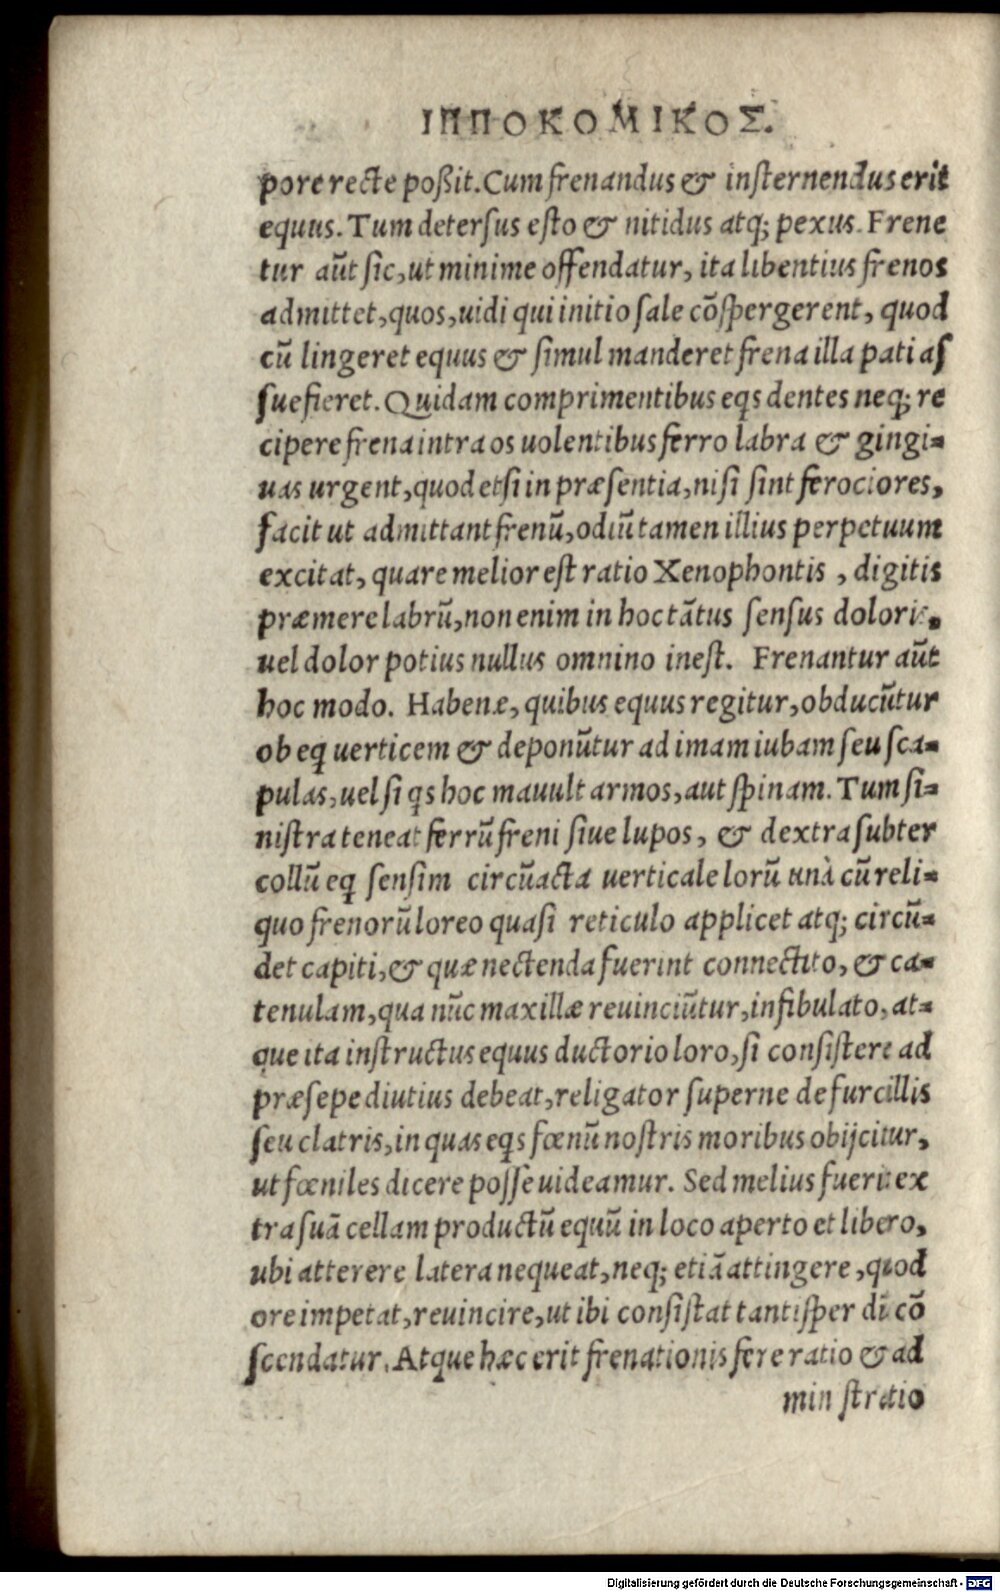 ΙΠΠΟΚΟΜΙΚΟΣ.
pore recte poßit. Cum frenandus & insternendus erit
equus. Tum detersus esto & nitidus atq; pexus. Frene
tur aũt sic, ut minime offendatur, ita libentius frenos
admittet, quos, uidi qui initio sale cõspergerent, quod
cũ lingeret equus & simul manderet frena illa pati as
suefieret. Quidam comprimentibus eqs dentes neq; re
cipere frena intra os uolentibus ferro labra & gingi-
uas urgent, quod etsi in præsentia, nisi sint ferociores,
facit ut admittant frenũ, odiũ tamen illius perpetuum
excitat, quare melior est ratio Xenophontis, digitis
præmere labrũ, non enim in hoc tãtus sensus doloris,
uel dolor potius nullus omnino inest. Frenantur aũt
hoc modo. Habenæ, quibus equus regitur, obducũtur
ob eq uerticem & deponũtur ad imam iubam seu sca-
pulas, uel si qs hoc mauult armos, aut spinam. Tum si-
nistra teneat ferrũ freni siue lupos, & dextra subter
collũ eq sensim circũacta uerticale lorũ unà cũ reli-
quo frenorũ loreo quasi reticulo applicet atq; circũ-
det capiti, & quæ nectenda fuerint connectito, & ca-
tenulam, qua nũc maxillæ reuinciũtur, infibulato, at-
que ita instructus equus ductorio loro, si consistere ad
præsepe diutius debeat, religator superne de furcillis
seu clatris, in quas eqs fœnũ nostris moribus obijcitur,
ut fœniles dicere posse uideamur. Sed melius fuerit ex
tra suã cellam productũ equũ in loco aperto et libero,
ubi atterere latera nequeat, neq; etiã attingere, quod
ore impetat, reuincire, ut ibi consistat tantisper dũ cõ
scendatur. Atque hæc erit frenationis fere ratio & ad
ministratio
Digitalisierung gefördert durch die Deutsche Forschungsgemeinschaft - DFG